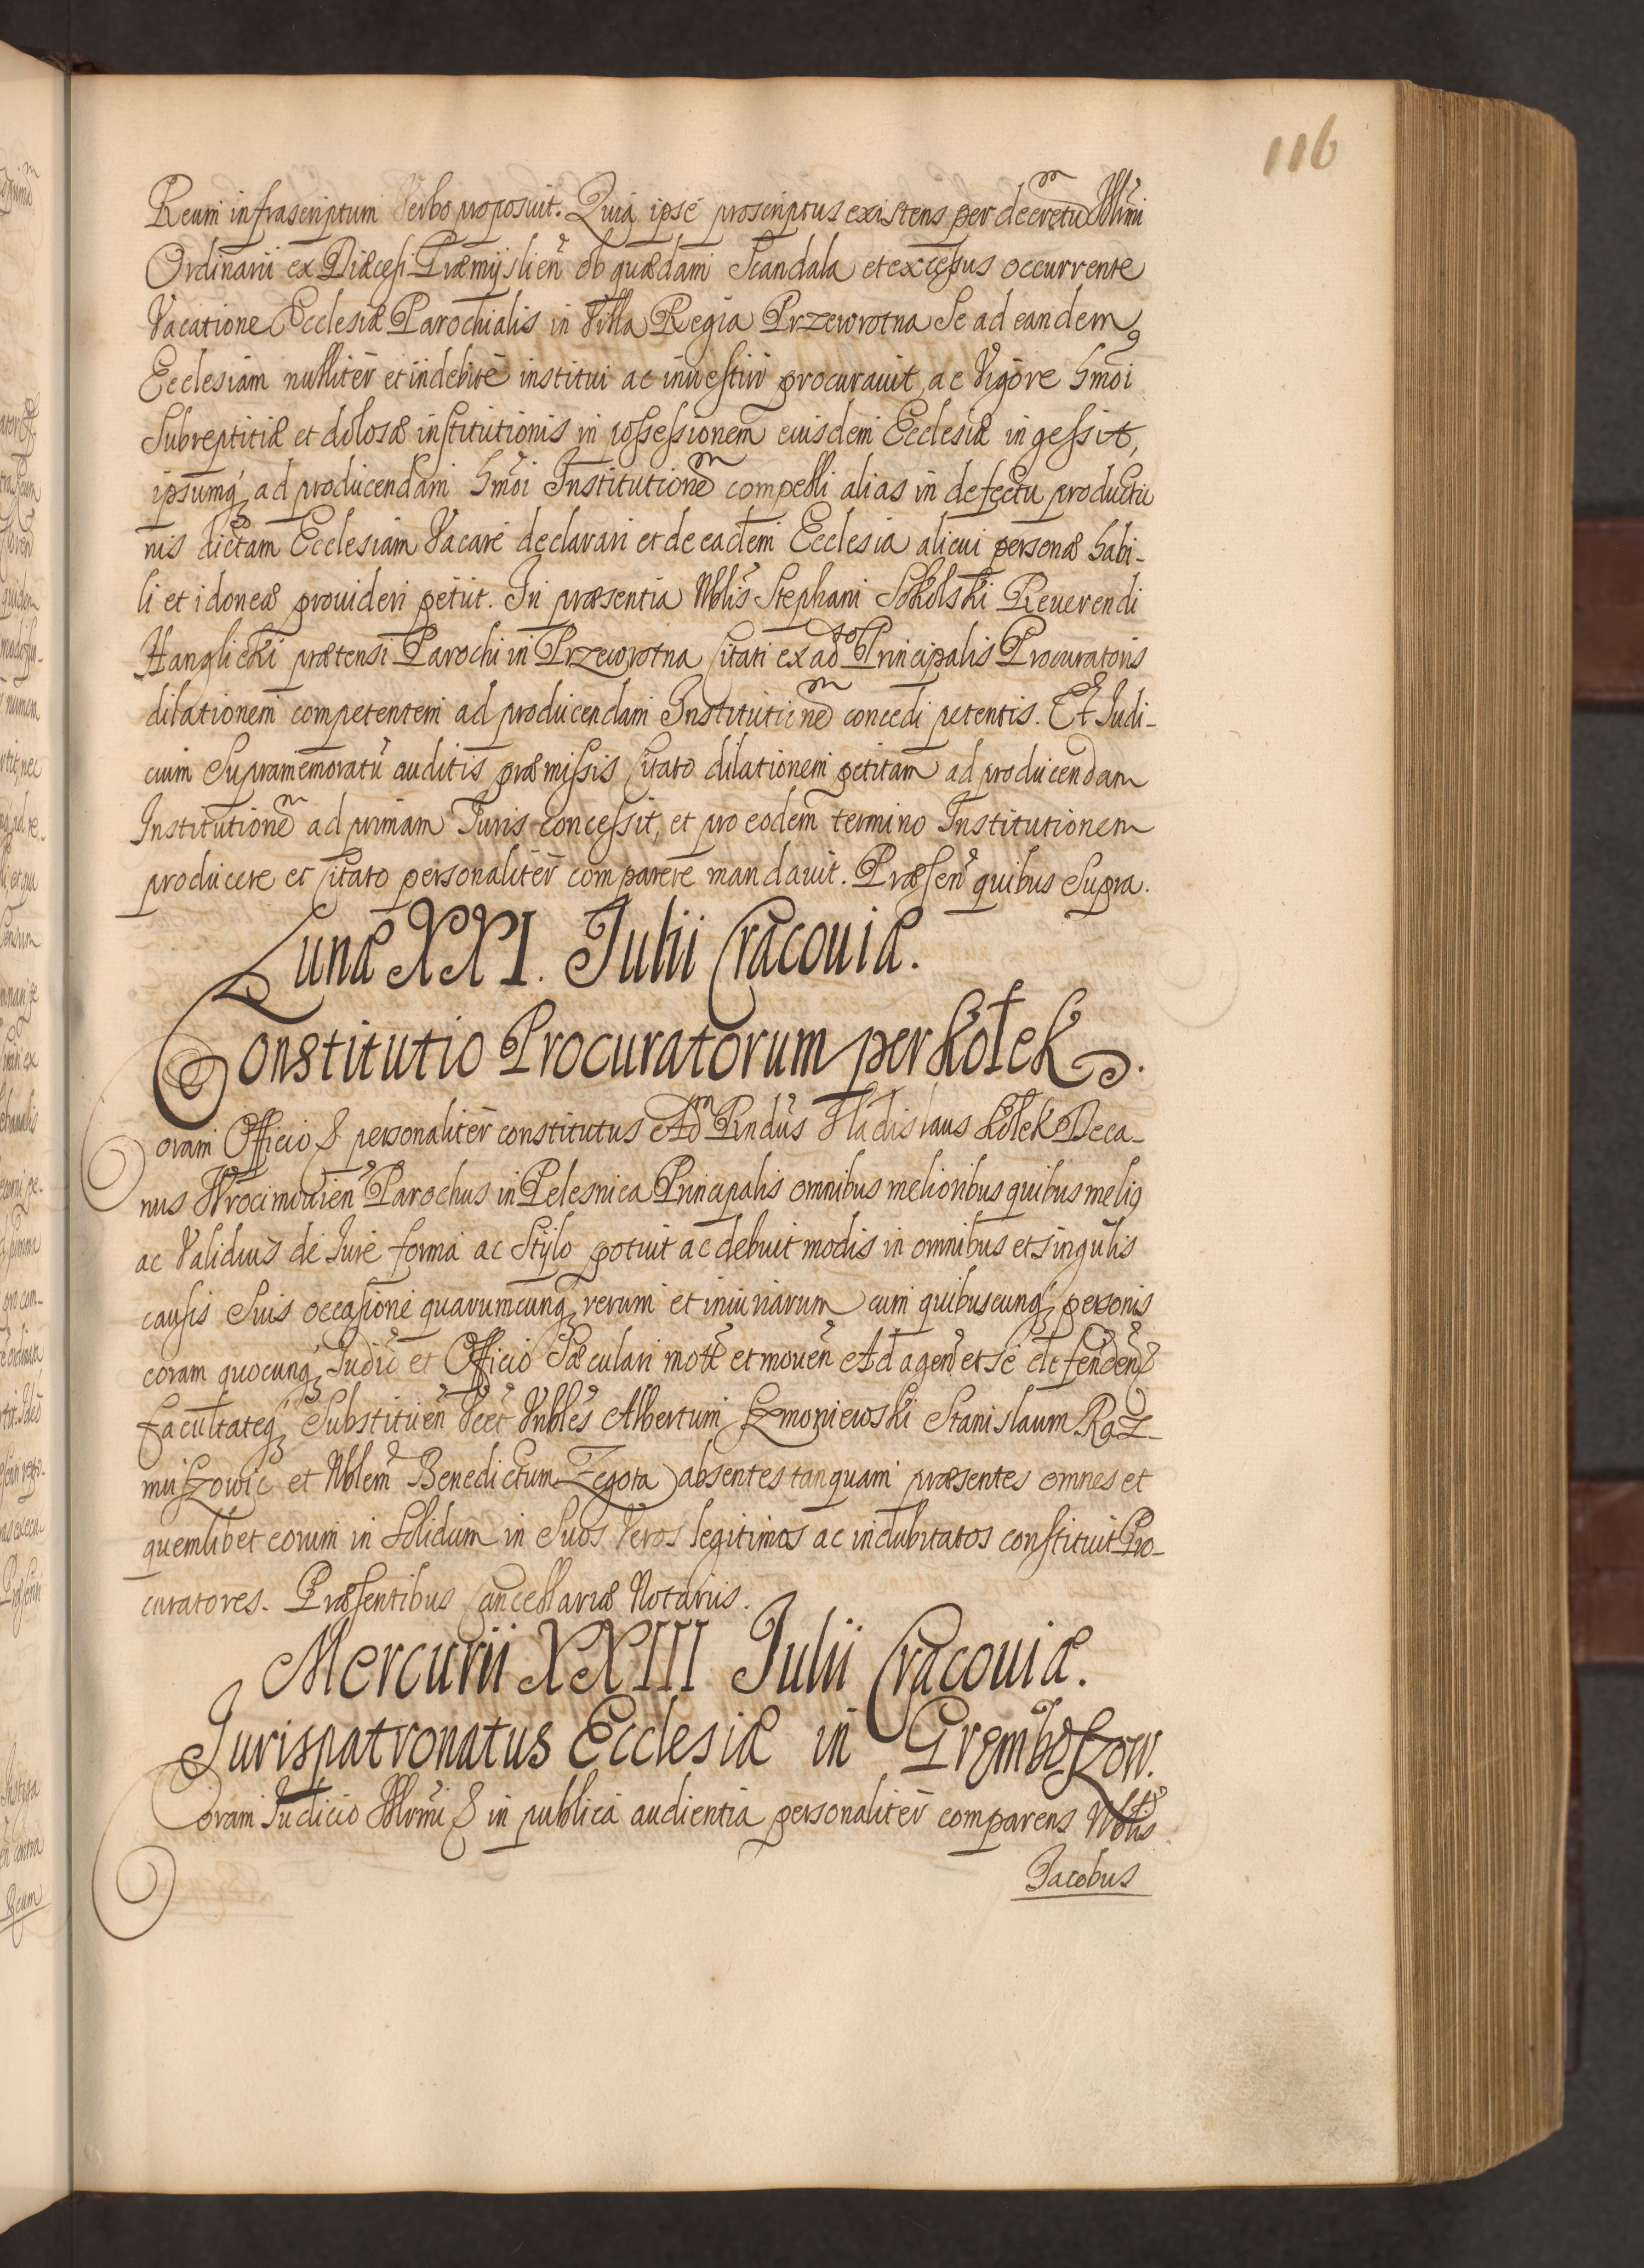 116
Reum infrascriptum Verbo proposuit. Quia ipse proscriptus existens per decretũ Illr̃mi
Ordinarii ex Diæcesi Præmyslieñ ob quædam Scandala et excessus occurrente
Vacatione Ecclesiæ Parochialis in Villa Regia Przewrotna Se ad eandem
Ecclesiam nulliter et indebite institui ac inuestiri procurauit, ac Vigore hm̃oi
Subreptitiæ et dolosæ institutionis in possessionem eiusdem Ecclesiæ ingessit,
ipsumq́ ad producendam hm̃oi Institutionẽ compelli alias in defectu productio
nis dictam Ecclesiam Vacare declarari et de eadem Ecclesia alicui personæ habi-
li et idoneæ prouideri petiit. In præsentia Nblis Stephani Sokolski Reuerendi
Hanglicki prætensi Parochi in Przewrotna Citati ex ad°so Principalis Procuratoris
dilationem competentem ad producendam Institutionẽ concedi petentis. Et Judi-
cium Supramemoratũ auditis præmissis Citato dilationem petitam ad producendam
Institutionẽ ad primam Juris concessit, et pro eodem termino Institutionem
producere et Citato personaliter comparere mandauit. Præseñ quibus Supra.
Lunæ XXI. Julii Cracouiæ.
Constitutio Procuratorum per Kołek.
Coram Officio & personaliter constitutus Adm Rndus Vladislaus Kołek Deca-
nus Wrocimouieñ Parochus in Pelesnica Principalis omnibus melioribus quibus meliꝯ
ac Validius de Jure forma ac Stylo potuit ac debuit modis in omnibus et singulis
causis Suis occasione quarumcunq, rerum et iniuriarum cum quibuscunq, personis
coram quocunq, Judiĉ et Officio Sæculari mot̃ et moueñ Ad ageñ et se defendeñ &
facultateq́ Substitueñ Vcet̃ Nbles Albertum Szmoniewski Stanislaum Raz-
miszowic et Nblem Benedictum Zegota absentes tanquam præsentes omnes et
quemlibet eorum in Solidum in Suos Veros legitimos ac indubitatos constituit Pro-
curatores. Præsentibus Cancellariæ Notariis.
Mercurii XXIII Julii Cracouiæ.
Jurispatronatus Ecclesiæ in Gremboszow.
Coram Judicio Illr̃mi & in publica audientia personaliter comparens Nblis
Jacobus